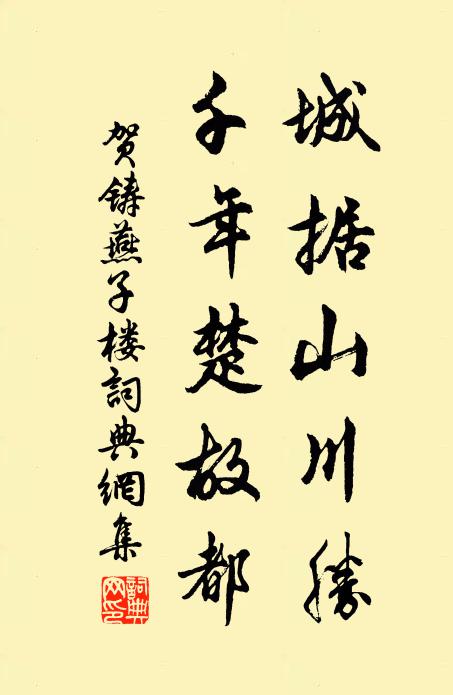 城据山川勝
千年楚故都
贺铸燕子楼詞典網集
詞典网印